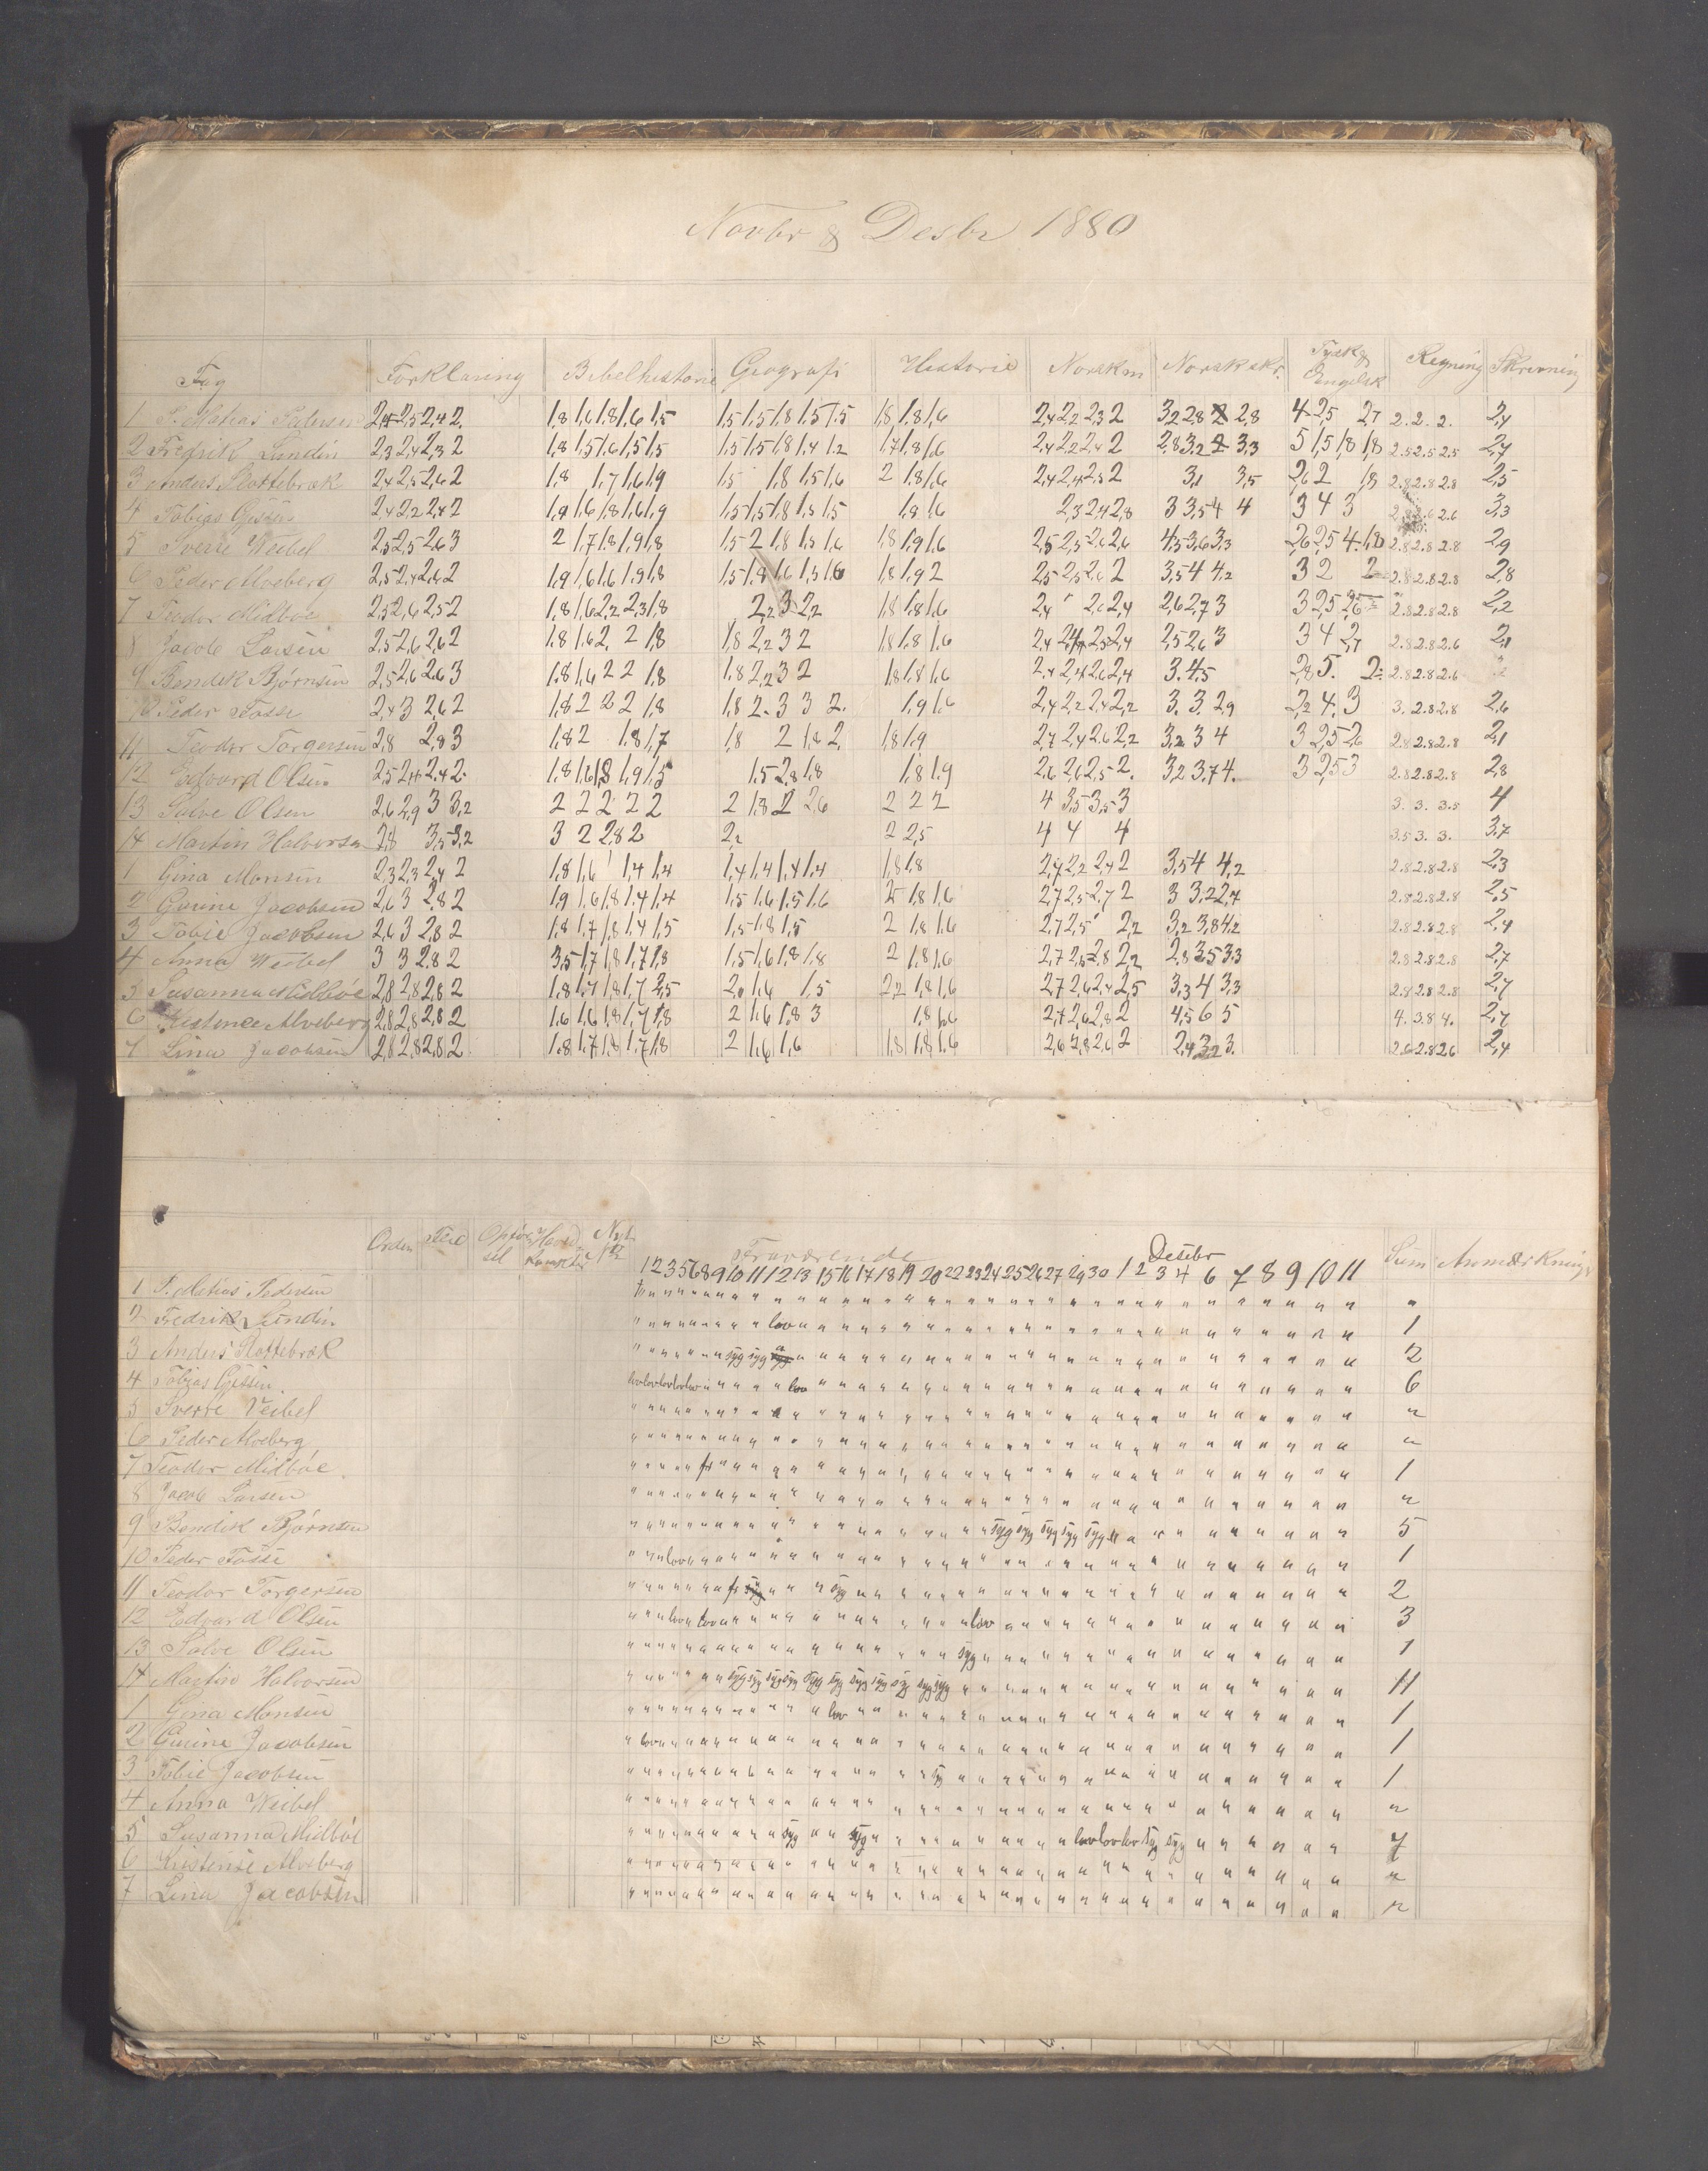 Novbr & Desbr 1880
Fag Forklaring Bibelhistorie Geografi Historie Norsk m Norsk skr. Tysk & Engelsk Regning Skrivning
1 P. Matias Pedersen 2,4 2,5 2,4 2. 1,8 1,6 1,8 1,6 1,5 1,5 1,5 1,8 1,5 1,5 1,8 1,8 1,6 2,4 2,2 2,3 2 3,2 2,8 2 2,8 4 2,5 2,7 2. 2. 2. 2,4
2 Fredrik Lundin 2,3 2,4 2,3 2 1,8 1,5 1,6 1,5 1,5 1,5 1,5 1,8 1,4 1,2 1,7 1,8 1,6 2,4 2,2 2,4 2 2,8 3,2 2 3,3 5 1,5 1,8 1,8 2.5 2.5 2.5 2,7
3 Anders Slottebræk 2,4 2,5 2,6 2 1,8 1,7 1,6 1,9 1,5 1,8 1,5 1,6 2 1,8 1,6 2,4 2,4 2,5 2 3,1 3,5 2,6 2 1,8 2.8 2.8 2.8 2,5
4 Tobias Gjesen 2,4 2,2 2,4 2 1,9 1,6 1,8 1,6 1,9 1,5 1,5 1,8 1,5 1,5 1,8 1,6 2,3 2,4 2,8 3 3,5 4 4 3 4 3 2.6 2.6 3,3
5 Sverre Weibel 2,5 2,5 2,6 3 2 1,7 1,8 1,9 1,8 1,5 2 1,8 1,5 1,6 1,8 1,9 1,6 2,5 2,5 2,6 2,6 4,5 3,6 3,3 2,6 2,5 4 1,8 2.8 2.8 2.8 2,9
6 Peder Alveberg 2,5 2,4 2,6 2 1,9 1,6 1,6 1,9 1,8 1,5 1,8 1,6 1,5 1,6 1,8 1,9 2 2,5 2,5 2,6 2 3,5 4 4,2 3 2 2 2.8 2.8 2.8 2,8
7 Teodor Midbøe 2,5 2,6 2,5 2 1,8 1,6 2,2 2,3 1,8 2,2 3 2,2 1,8 1,8 1,6 2,4 2,6 2,4 2,6 2,7 3 3 2,5 2,6 2.8 2.8 2.8 2,2
8 Jacob Larsen 2,5 2,6 2,6 2 1,8 1,6 2. 2 1,8 1,8 2,2 3 2 1,8 1,8 1,6 2,4 2,4 2,5 2,4 2,5 2,6 3 3 4 2,7 2.8 2.8 2.6 2,1
9 Bendik Bjørnsen 2,5 2,6 2,6 3 1,8 1,6 2 2 1,8 1,8 2,2 3 2 1,8 1,8 1,6 2,4 2,4 2,6 2,4 3. 4,5 2,8 5. 2 2.8 2.8 2.6 2
10 Peder Fosse 2,4 3 2,6 2 1,8 2 2 2 1,8 1,8 2. 3 3 2. 1,9 1,6 2,4 2,2 2,4 2,2 3. 3. 2,9 2,2 4. 3 3. 2.8 2.8 2,6
11 Teodor Torgersen 2,8 2,8 3 1,8 2 1,8 1,7 1,8 2 1,8 2, 1,8 1,9 2,7 2,4 2,6 2,2 3,2 3 4 3 2,5 2,6 2.8 2.8 2.8 2,1
12 Edvard Olsen 2,5 2,4 2,4 2. 1,8 1,6 1,8 1,9 1,5 1,5 2,8 1,8 1,8 1,9 2,6 2,6 2,5 2. 3,2 3,7 4. 3 2,5 3 2.8 2.8 2.8 2,8
13 Salve Olsen 2,6 2,9 3 3,2 2 2 2 2 2 2 1,8 2 2,6 2 2 2 4 3,5 3,5 3 3. 3. 3.5 4
14 Martin Halvorsen 2,8 3,5 3,2 3 2 2,8 2 2,2 2 2,5 4 4 4 3.5 3. 3. 3,7
1 Gina Monsen 2,3 2,3 2,4 2 1,8 1,6 1,4 1,4 1,4 1,4 1,4 1,4 1,8 1,8 2,7 2,2 2,4 2 3,5 4 4,2 2.8 2.8 2.8 2,3
2 Gurine Jacobsen 2,6 3 2,8 2 1,9 1,6 1,8 1,4 1,4 1,5 1,6 1,5 1,6 2 1,8 1,6 2,7 2,5 2,7 2 3 3,2 2,4 2.8 2.8 2.8 2,5
3 Tobie Jacobsen 2,6 3 2,8 2 1,8 1,7 1,8 1,4 1,5 1,5 1,8 1,5 2 1,8 1,6 2,7 2,5 2,2 3,2 3,8 4,2 2.8 2.8 2.8 2,4
4 Anna Weibel 3 3 2,8 2 3,5 1,7 1,8 1,7 1,8 1,5 1,6 1,8 1,8 2 1,8 1,6 2,7 2,5 2,8 2,2 2,8 3,5 3,3 2.8 2.8 2.8 2,7
5 Susanna Midbøe 2,8 2,8 2,8 2 1,8 1,7 1,8 1,7 2,5 2,1 1,6 1,5 2,2 1,8 1,6 2,7 2,6 2,4 2,5 3,3 4 3,3 2.8 2.8 2.8 2,7
6 Kristence Alveberg 2,8 2,8 2,8 2 1,6 1,6 1,8 1,7 1,8 2 1,6 1,8 3 1,8 1,6 2,7 2,6 2,8 2 4,5 6 5 4. 3.8 4. 2,7
7 Lina Jacobsen 2,8 2,8 2,8 2 1,8 1,7 1,8 1,7 1,8 2 1,6 1,6 1,8 1,8 1,6 2,6 2,8 2,6 2 2,4 3,2 3. 2.6 2.8 2.6 2,4
Orden Flid Opførsel Hoved karakter Nyt Nr Fraværende Desbr Sum Anmærkninger
1 2 3 5 6 8 9 10 11 12 13 15 16 17 18 19 20 22 23 24 25 26 27 29 30 1 2 3 4 6 7 8 9 10 11
1 P. Matias Pedersen "
2 Fredrik Lundin lov 1
3 Anders Slottebræk syg syg syg 2
4 Tobias Gjesen lov lov lov lov lov lov 6
5 Sverre Veibel "
6 Peder Alveberg "
7 Teodor Midbøe fr 1
8 Jacob Larsen "
9 Bendik Bjørnsen syg syg syg syg syg 5
10 Peder Fosse lov 1
11 Teodor Torgersen fr syg syg 2
12 Edvard Olsen lov lov lov 3
13 Salve Olsen syg 1
14 Martin Halvorsen syg syg syg syg syg syg syg syg syg syg syg 11
1 Gina Monsen lov 1
2 Gurine Jacobsen lov 1
3 Tobie Jacobsen syg 1
4 Anna Weibel "
5 Susanna Midbøe syg syg lov lov lov syg syg 7
6 Kristense Alveberg "
7 Lina Jacobsen "